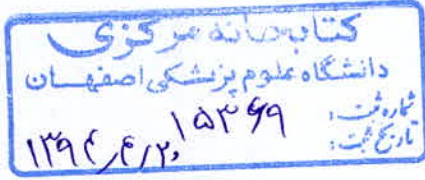 کتابخانه مرکزی
دانشگاه علوم پزشکی اصفهان
شماره ثبت: ۱۵۳۶۹
تاریخ ثبت: ۱۳۹۴/۴/۲۰